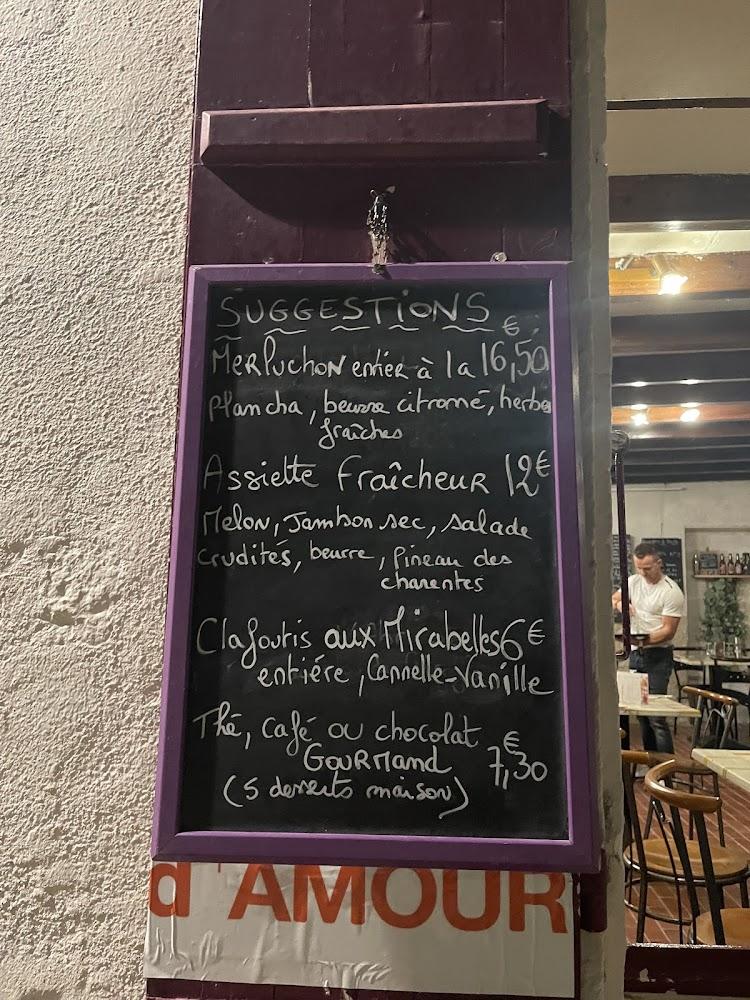 SUGGESTIONS
Merluchon entier à la 16,50€
plancha, beurre citronné, herbes
fraîches
Assiette Fraîcheur 12€
Melon, Jambon sec, salade
crudités, beurre, Pineau des
charentes
Clafoutis aux Mirabelles 6€
entiére, Cannelle-Vanille
Thé, café ou chocolat
GOURMand 7,30€
(5 desserts maison)
d'AMOUR